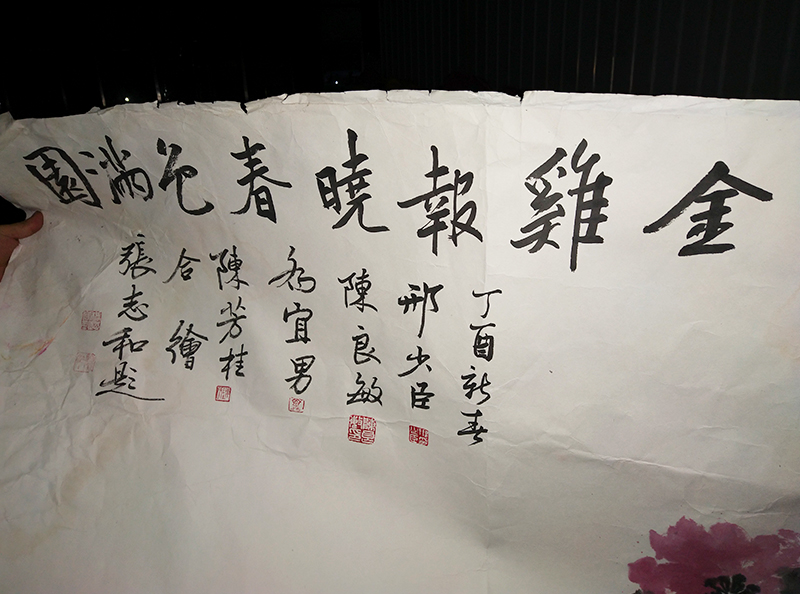 金雞報曉春色滿園
丁酉新春
邢少臣
陳良敏
為宜男
陳芳桂
合繪
張志和題